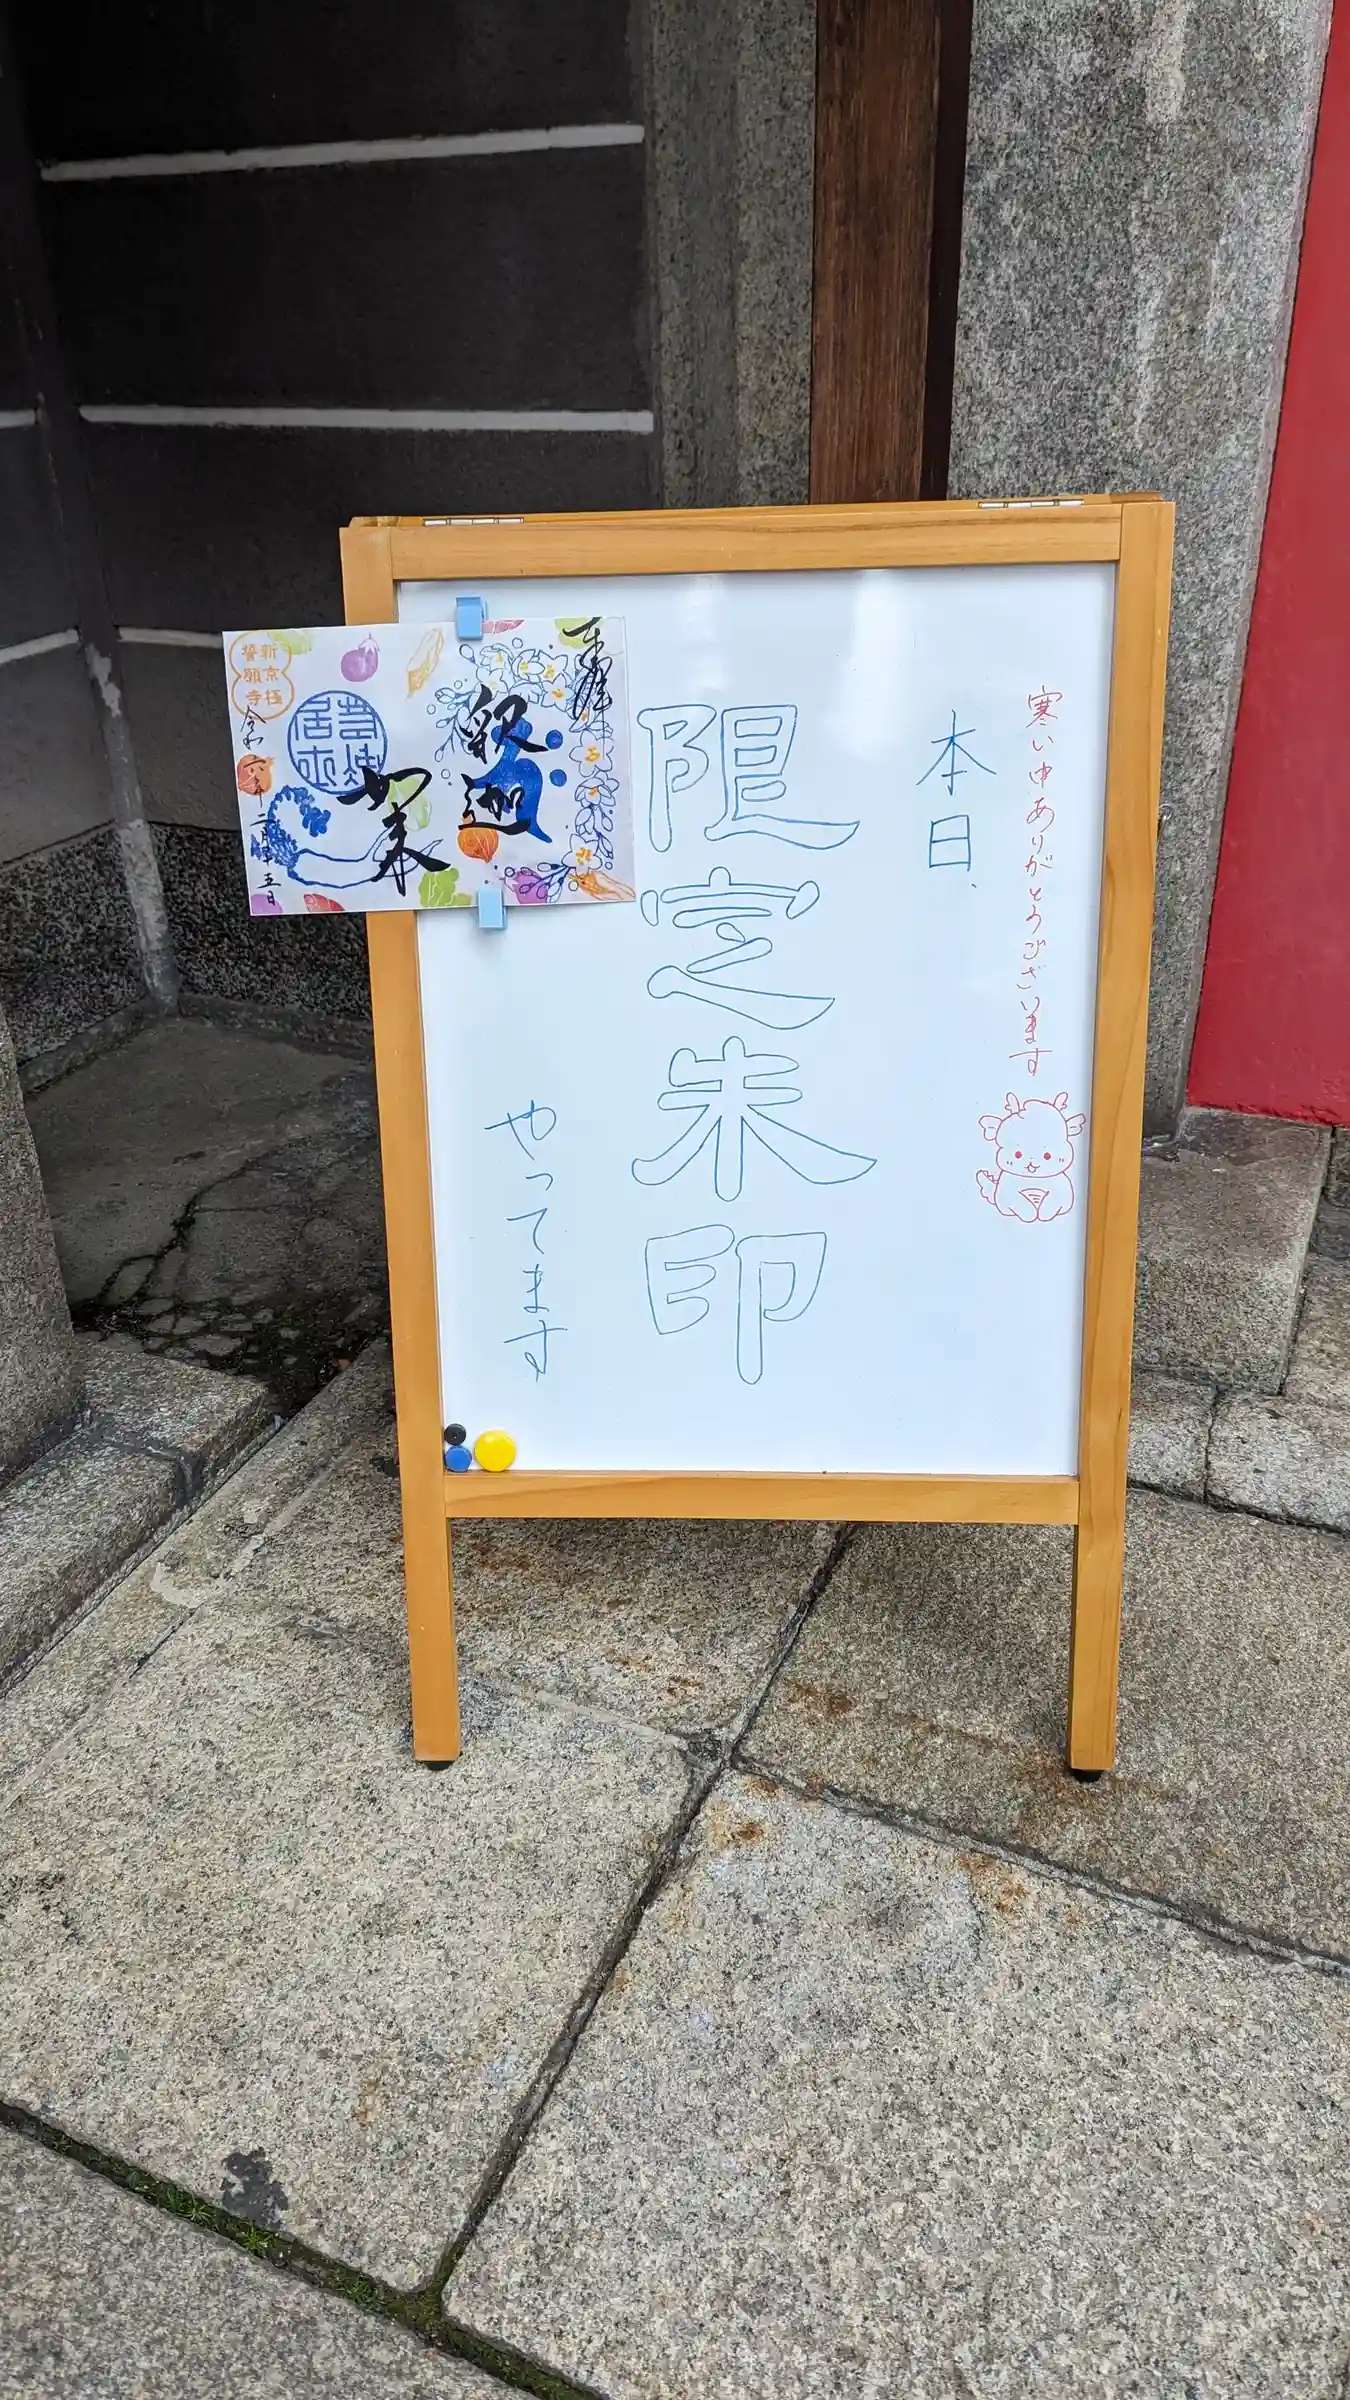 寒い中ありがとうございます
本日、
限定朱印
やってます
奉拝
釈迦
如来
新京極
誓願寺
令和六年二月十五日